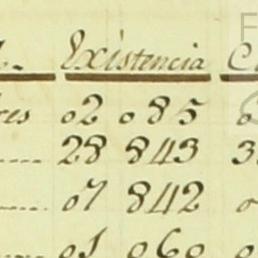 Existencia
res 02 085
28 843 3
07 842
01 060